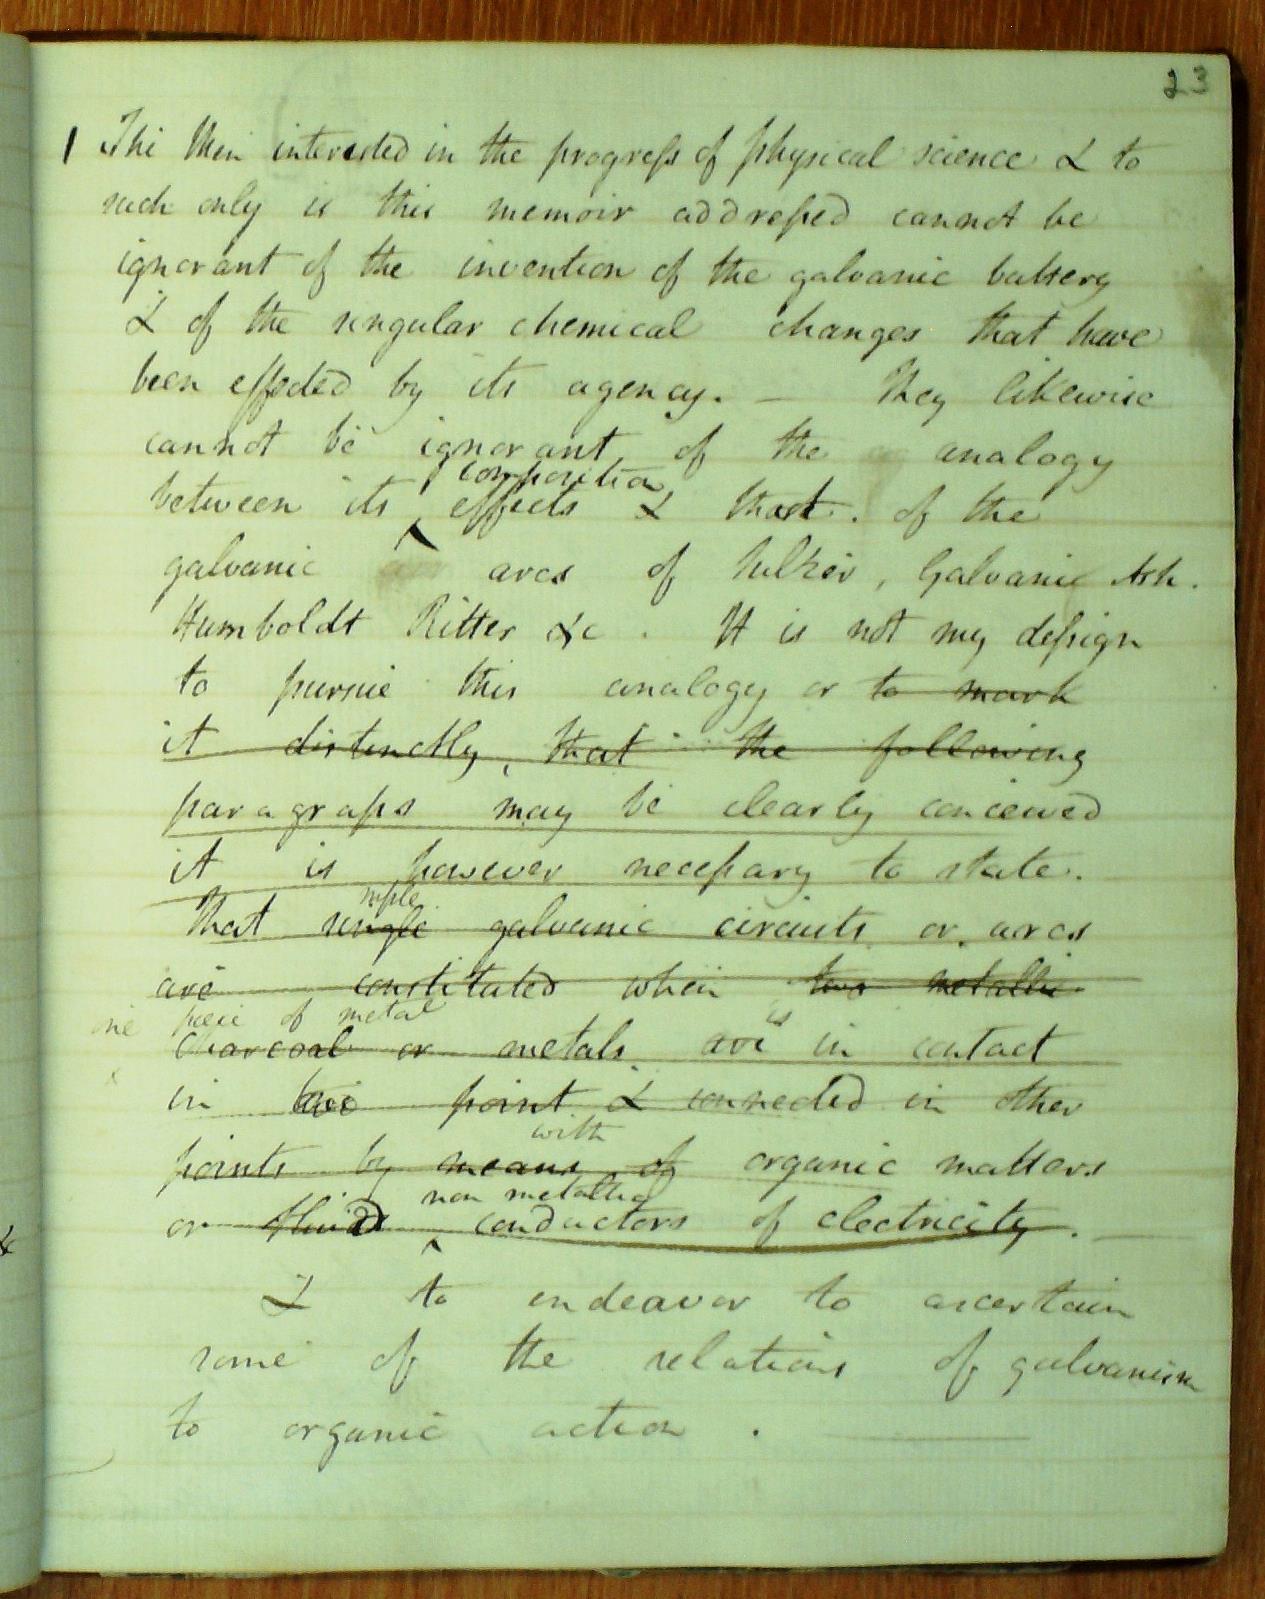 23
1 The Men interested in the progress of physical science & to
such only is this memoir addressed cannot be
ignorant of the invention of the galvanic battery
& of the singular chemical changes that have
been effected by its agency. — They likewise
cannot be ignorant of the analogy
composition
between its effects & that. of the
galvanic arcs of Sulzer, Galvani Ash.
Humboldt Ritter &c. It is not my design
to pursue this analogy or to mark
it distinctly, that the following
paragraphs may be clearly conceived
it is however necessary to state.
mple
That single galvanic circuits or arcs
are constituted when two metallic
one piece of metal is
charcoal or metals are in contact
in two point & connected in other
with
points by means of organic matters
non metallic
or fluid conductors of electricity. —
& to endeavor to ascertain
some of the relations of galvanism
to organic action. —